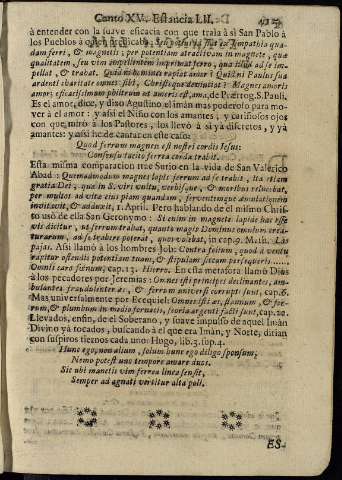 Canto XV. Estancia LII.
à entender con la suave eficacia con que traìa à sì San Pablo à
los Pueblos à
dam ferri, & magnetis; per potentiam attractivam in magnete, qua
qualitatem, seu vim impellentem imprimat ferro, qua illud ad se im-
pellat, & trahat. Quid ni homines rapiat amor? Quid ni Paulus sua
ardenti charitate omnes sibi, Christoque devinciat? Magnes amoris
amor; caritas
Es el amor, dice, y dizo Agustino, el imàn mas poderoso para mo-
ver à el amor: y assi el Niño con los amantes, y cariñosos ojos
con que mirò à los Pastores, los llevò à sì yà discretos, y yà
amantes: y assi hè de cantar en este caso:
Quod ferrum magnes est nostri cordis Iesus:
Consensu tacito ferrea corda trahit.
Esta misma comparacion trae Surio en la vida de San Valerico
Abad: Quemadmodum magnes lapis ferrum ad se trahit, Ita etiam
gratia Dei, qua in S. viri vultu, verbisque, & moribus relucebat,
per multos ad vitæ eius piam quandam, ferventemque æmulationem
invitavit, & adduxit, 1. April. Pero hablando de el mismo Chris-
to usò de ella San Geronymo: Si enim in magnete lapide hæc esse
vis dicitur, ut ferrum trahat, quanto magis Dominus omnium crea-
turarum, ad se trahere poterat, quos volebat, in cap. 9. Matth. Las
pajas. Assi llamò à los hombres Job: Contra folium, quod à vento
rapitur ostendis potentiam tuam, & stipulam siccam persequeris
Omnis caro fœnum, cap. 13. Hierro. En esta metafora llamò Dios
à los pecadores por Jeremias: Omnes isti principes declinantes, am-
bulantes fraudulenter æs, & ferrum universi corrupti sunt, cap. 6.
Mas universalmente por Ecequiel: Omnes isti æs, & stamnum, & fer-
rum, & plumbum in medio fornacis, scoria argenti facti sunt, cap. 22.
Llevados, enfin, de el Soberano, y suave impulso de aquel Imàn
Divino yà tocados, buscando à el que era Imàn, y Norte, dirian
con suspiros tiernos cada uno: Hugo, lib. 3. sup. 4.
Hunc ego, non alium, solum hunc ego diligo sponsum;
Nemo potest uno tempore amare duos.
Sic ubi manetis vim ferrea linea sensit,
Semper ad agnati vertitur alta poli.
ES-